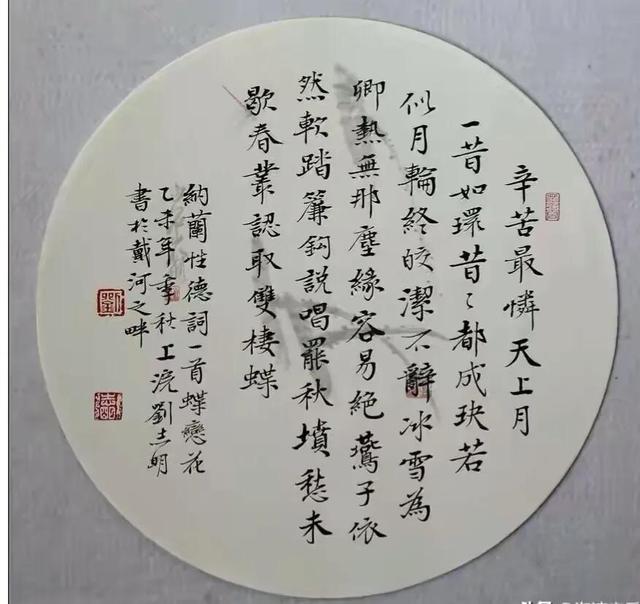 辛苦最憐天上月
一昔如環昔〻都成玦若
似月輪終皎潔不辭冰雪為
卿熱無那塵緣容易絕鷰子依
然軟踏簾鈎説唱罷秋墳愁未
歇春叢認取雙棲蝶
納蘭性德詞一首蝶戀花
乙未年季秋工浣劉志明
書於戴河之畔
劉